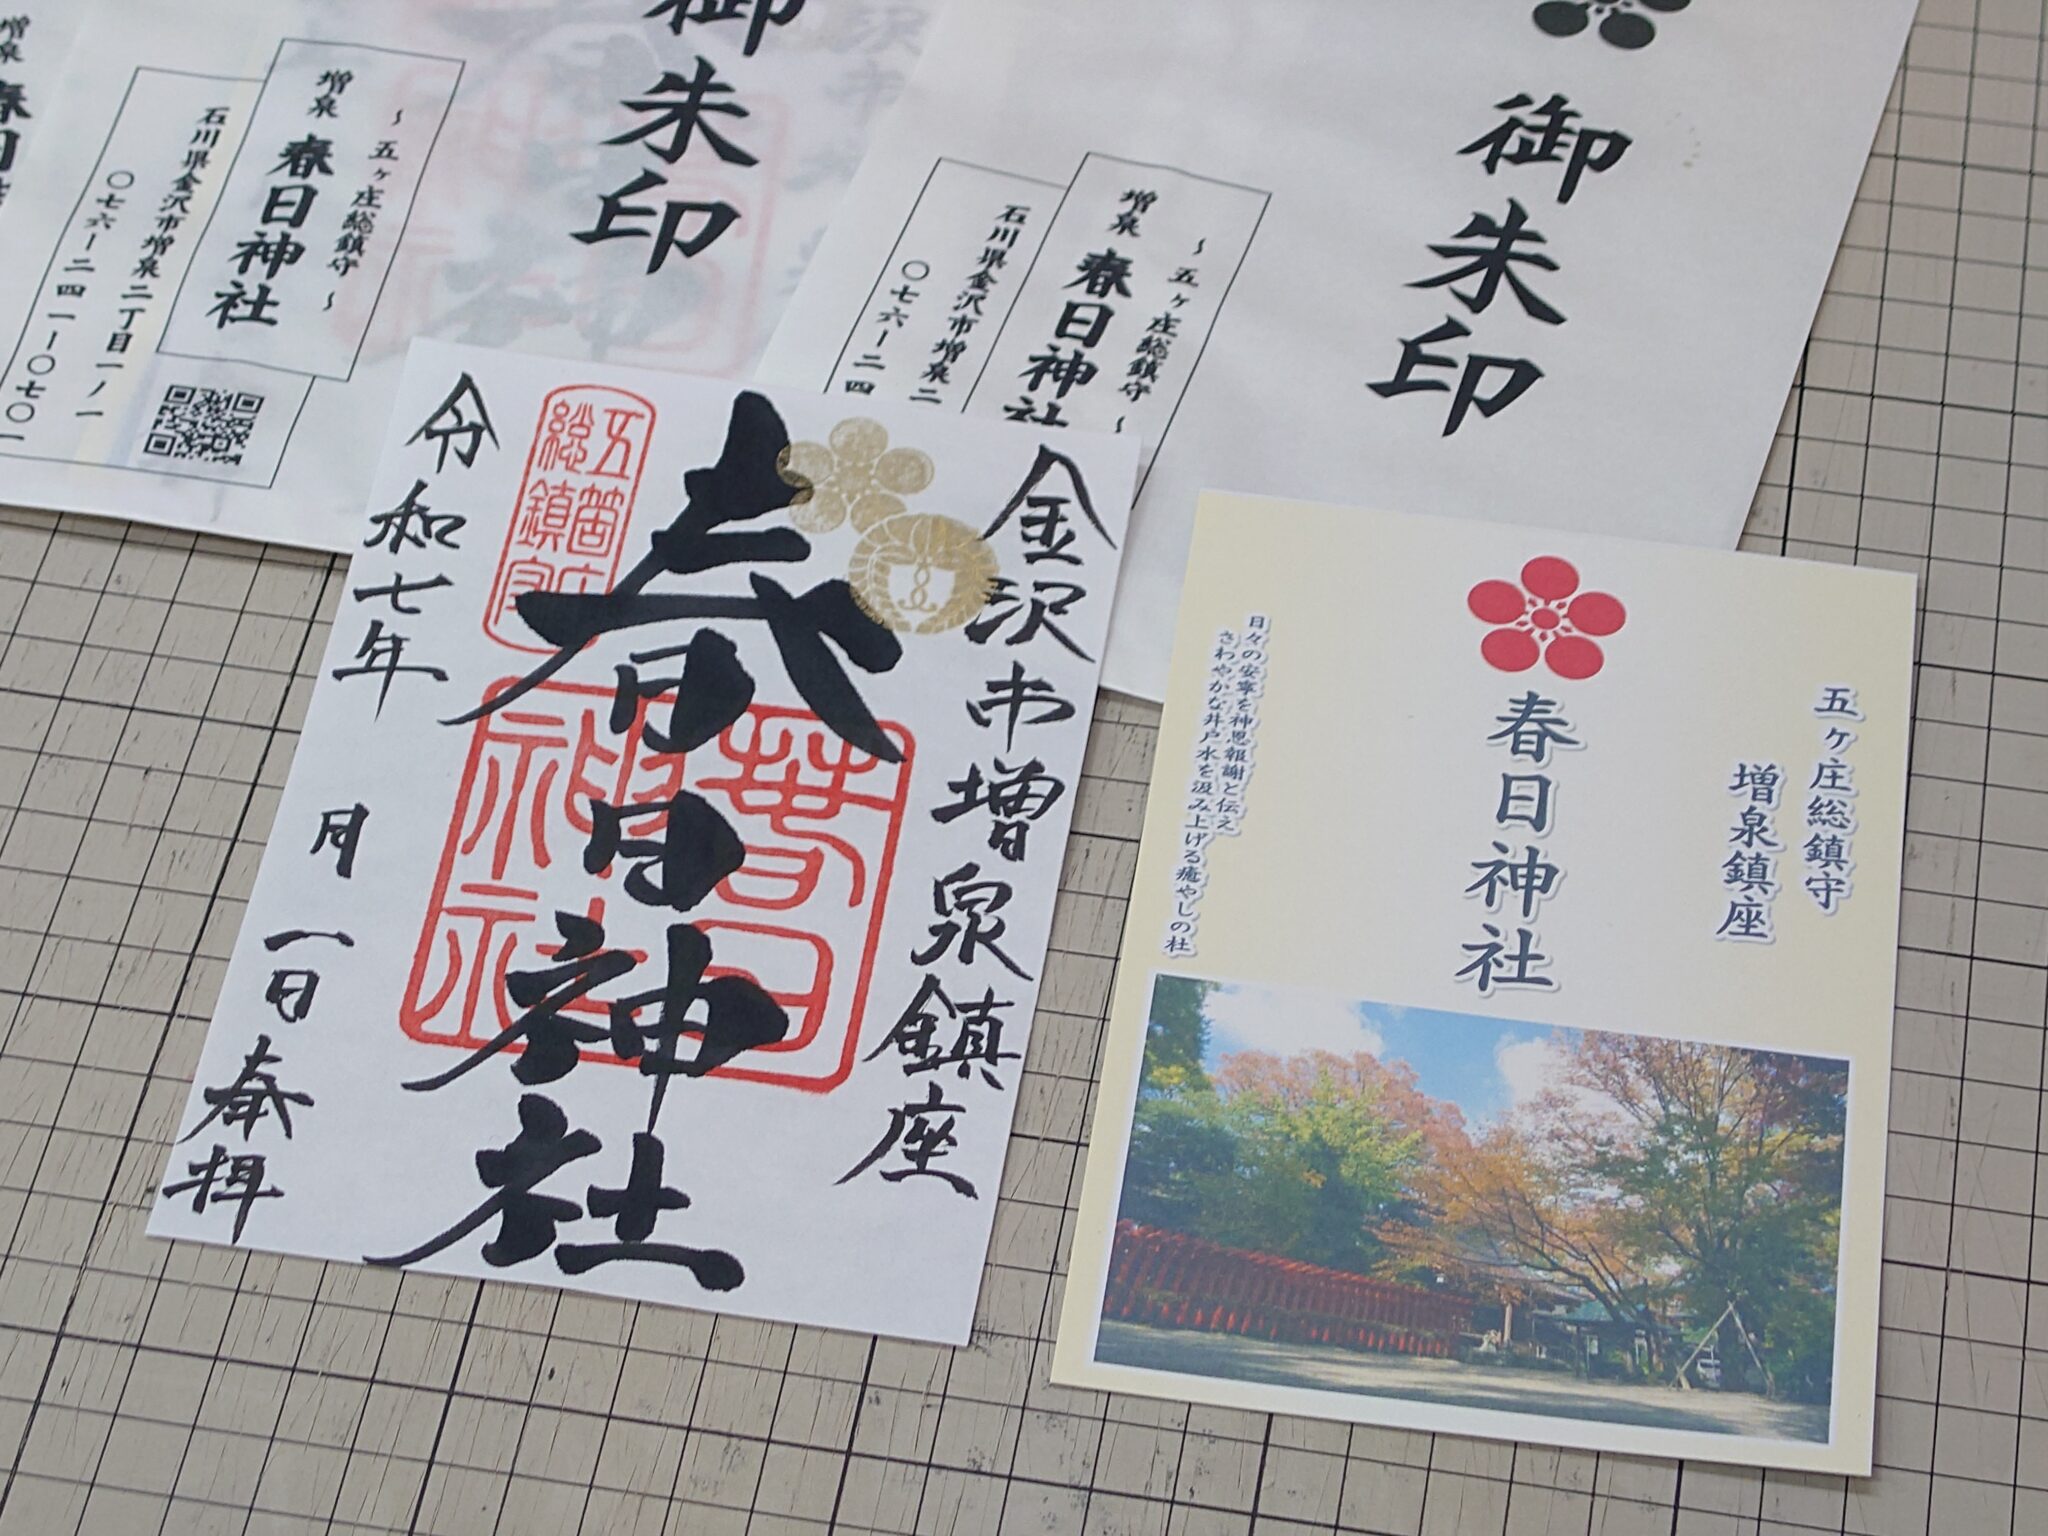 御朱印
～五ヶ庄総鎮守～
増泉 春日神社
石川県金沢市増泉二丁目一ノ一
〇七六ー二四一ー〇七〇一
御朱印
～五ヶ庄総鎮守～
増泉 春日神社
石川県金沢市増泉二
〇七六ー二四
増泉 春日
金沢市増泉鎮座
春日神社
五箇庄
総鎮守
春日
神社
令和七年 月一日奉拝
五ヶ庄総鎮守
増泉鎮座
春日神社
日々の安寧を神恩報謝と伝え
さわやかな井戸水を汲み上げる癒やしの杜